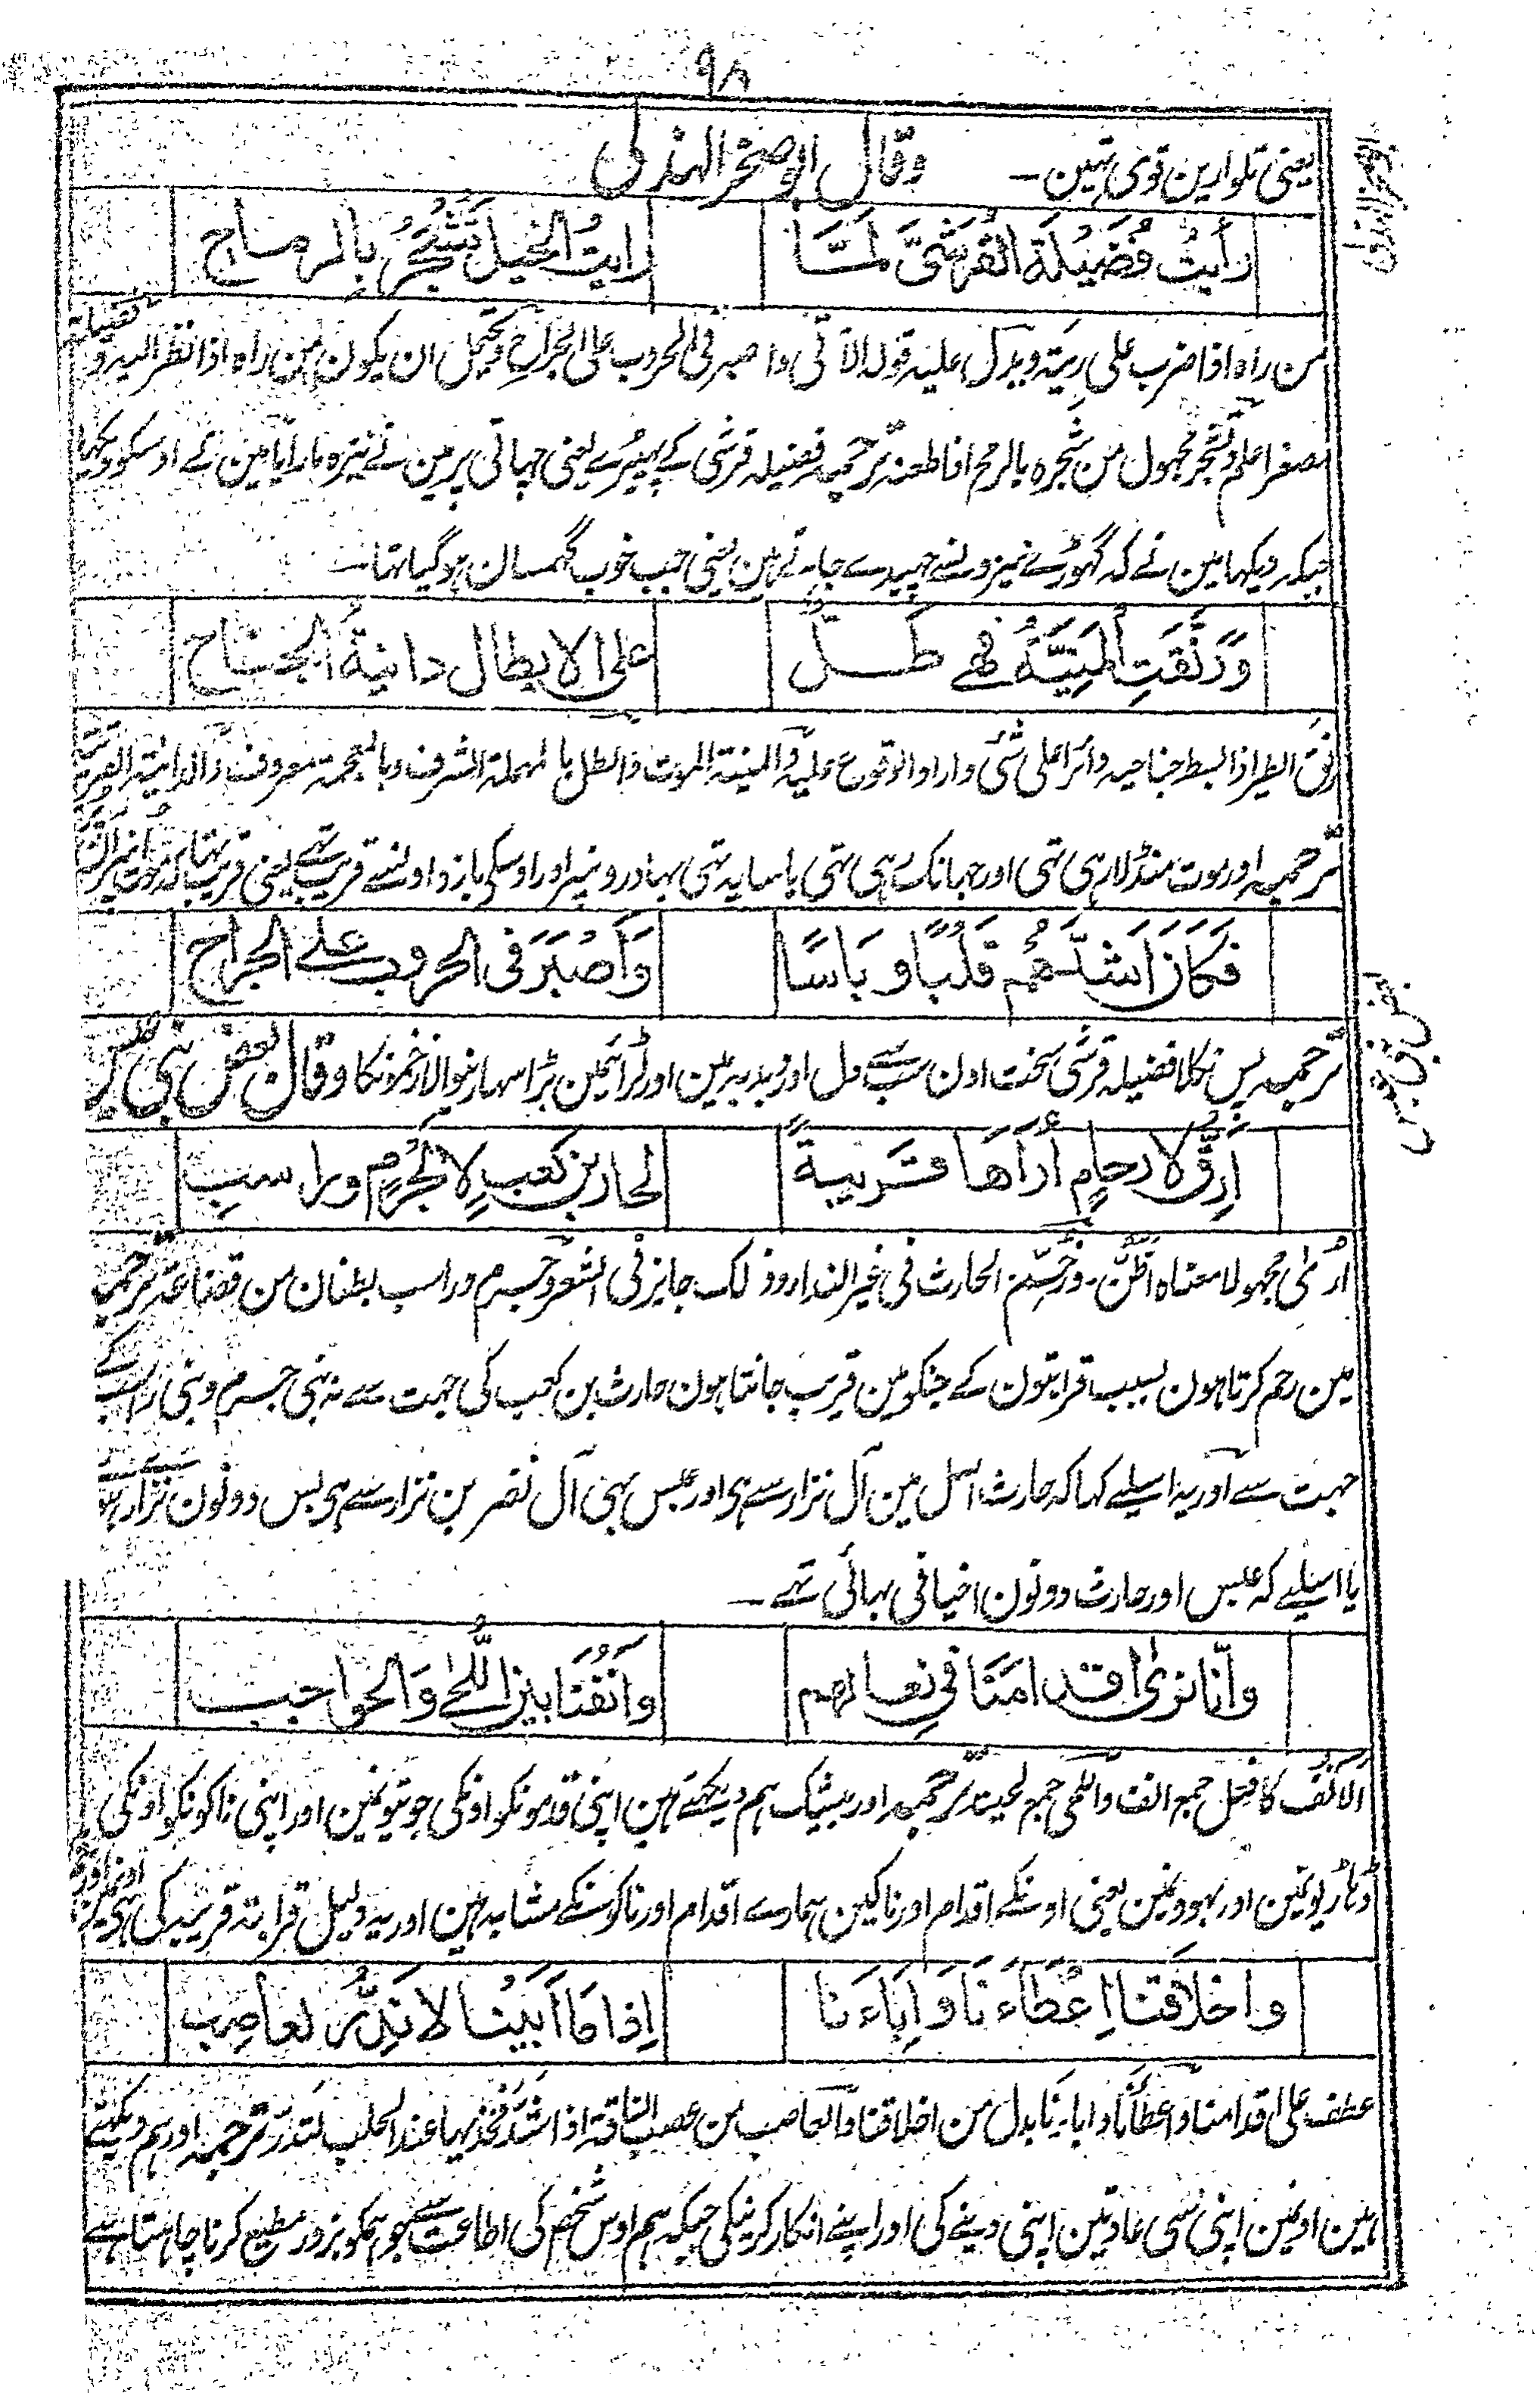 ۹۸
یعنی تلوارین قوی تہین ــ وقال ابو صخر الہذلی
ابو صخر الہذلی
رَأیتُ فُضَیلَةَ القُرَشَّیَّ لَمَّا رایتُ الخیلَ تُشْجَرُ بالرماح
من راٰہ اذا ضرب علی ریتہ ویدل علیہ قولہ الآتی واصبر فی الحروب علی الجراح ویحتمل ان یکون من راٰہ اذا نظر الیہ وفضیلة
مصغرا علم وتشجر مجہول من شجرہ بالرمح اذا طعنہ ترجمہ فضیلہ قرشی کے پہیپڑے یعنی چہاتی پر مین نے نیزہ مارا یا مین نے اوسکو دیکہا
جبکہ دیکہا مین نے کہ گہوڑے نیزونسے چہیدے جاتے ہین یعنی جب خوب گہمسان ہوگیا تہا ــ
وَرَنَّقَتِ المَنِیَّةُ فھے طَلٌّ علی الابطال دانیةُ الجناح
رنق الطیر اذا بسط جناحیہ دائرا علی شئ واراد الوقوع علیہ والمنیة الموت والطل بالمہملة الشرف وبالمعجمة معروف والدانیة القریبة
ترجمہ اور موت منڈلا رہی تہی اور جہانک رہی تہی یا سایہ تہی بہادرونپر اور اوسکی بازو اونسے قریب تہے یعنی قریب تہا کہ موت انپر
فَکَانَ اَشَدَّھُم قَلْبًا وَبَاسًا وَاَصْبَرَ فی الحروبِ علے الجراح
ترجمہ پس نکلا فضیلہ قرشی سخت اون سب سے دل اور دبدبہ مین اور لڑائیمین بڑا سہارنیوالا زخمونکا وقال بعض بنی عبس
بعض بنی عبس
اَرِقُّ لارحامٍ اُرَاھَا قَرِیبةً لحارِ بن کعبٍ لا لجُرْمٍ وراسبِ
اُرٰی مجہولا معناہ اظنّ ۔ ورُخّم الحارث فی غیر النداء وذلک جایز فی الشعر وجرم وراسب بطنان من قضاعة ترجمہ
مین رحم کرتا ہون بسبب قرابتون کے جنکو مین قریب جانتا ہون حارث بن کعب کی جہت سے نہ بنی جرم وبنی راسب کے
جہت سے اور یہ اسیلے کہا کہ حارث اصل مین آل نزار سے ہی اور عبس بہی آل مضر بن نزار سے ہی پس دونون نزار سے
یا اسیلے کہ عبس اور حارث دونون اخیافی بہائی تہے ــ
وَاَنّا نریٰ اقدامَنَا فی نعالہم وَاٰنُفَنَا بین اللُّحٰے وَالحواجب
الانف کافعل جمع انف واللحی جمع لحیة ترجمہ اور بیشک ہم دیکہتے ہین اپنی قدمونکو اونکی جوتیونمین اور اپنی ناکونکو اونکی
ڈاڑہیونمین اور بہوونمین یعنی اونکے اقدام اور ناکین ہمارے اقدام اور ناکونکے مشابہ ہین اور یہ دلیل قرابة قریبہ کی ہی
وَاَخلاقَنا اِعْطَاءَنَا وَاِبَاءَنَا اِذا مَا اَبَیْنَا لا نَدُرُّ لعاصِب
عطف علی اقدامنا واعطائنا وابائنا بدل من اخلاقنا والعاصب من عصب الناقة اذا شد فخذیہا عند الحلب لتدر ترجمہ اور ہم دیکہتے
ہین اونمین اپنی سی عادتین اپنی دینے کی اور اپنے انکار کرنیکی جبکہ ہم اوس شخص کی اطاعت سے جو ہمکو بزور مطیع کرنا چاہتا ہے